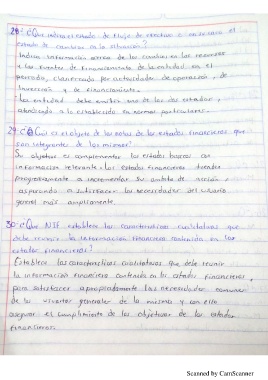 28- ¿Que indica el estado de flujo de efectivo o en su caso el
estado de cambios en la situación?
Indica información acerca de los cambios en los recursos
y las fuentes de financiamiento de la entidad en el
periodo, clasificados por actividades de operación, de
inversión y de financiamiento.
La entidad debe emitir uno de los dos estados,
atendiendo a lo establecido en normas particulares.
29- ¿Cuál es el objeto de las notas de los estados financieros que
son integrantes de los mismos?
Su objetivo es complementar los estados basicos con
información relevante. los estados financieros tienden
progresivamente a incrementar su ambito de acción,
aspirando a satisfacer las necesidades del usuario
general más ampliamente.
30- ¿Que NIF establece las características cualitativas que
debe reunir la información financiera contenida en los
estados financieros?
Establece las características cualitativas que debe reunir
la información financiera contenida en los estados financieros,
para satisfacer apropiadamente las necesidades comunes
de los usuarios generales de la misma y con ello
asegurar el cumplimiento de los objetivos de los estados
financieros.
Scanned by CamScanner